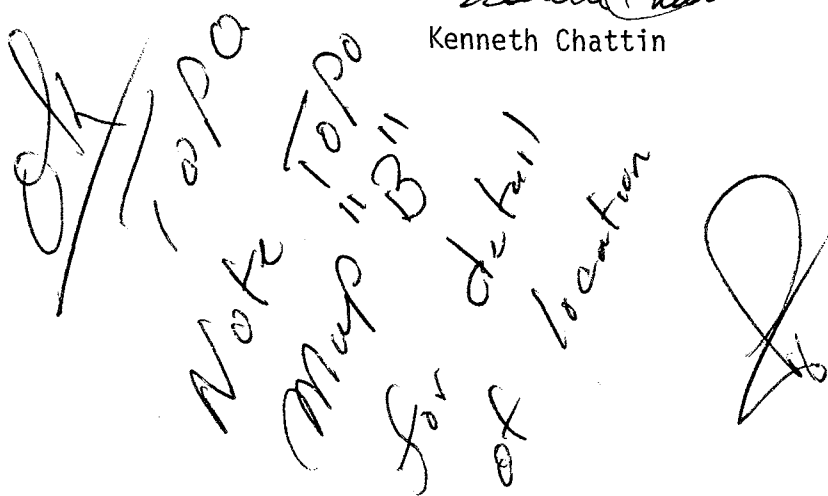 Kenneth Chattin
OK/Topo
Note Topo
Map "B"
for detail
of location